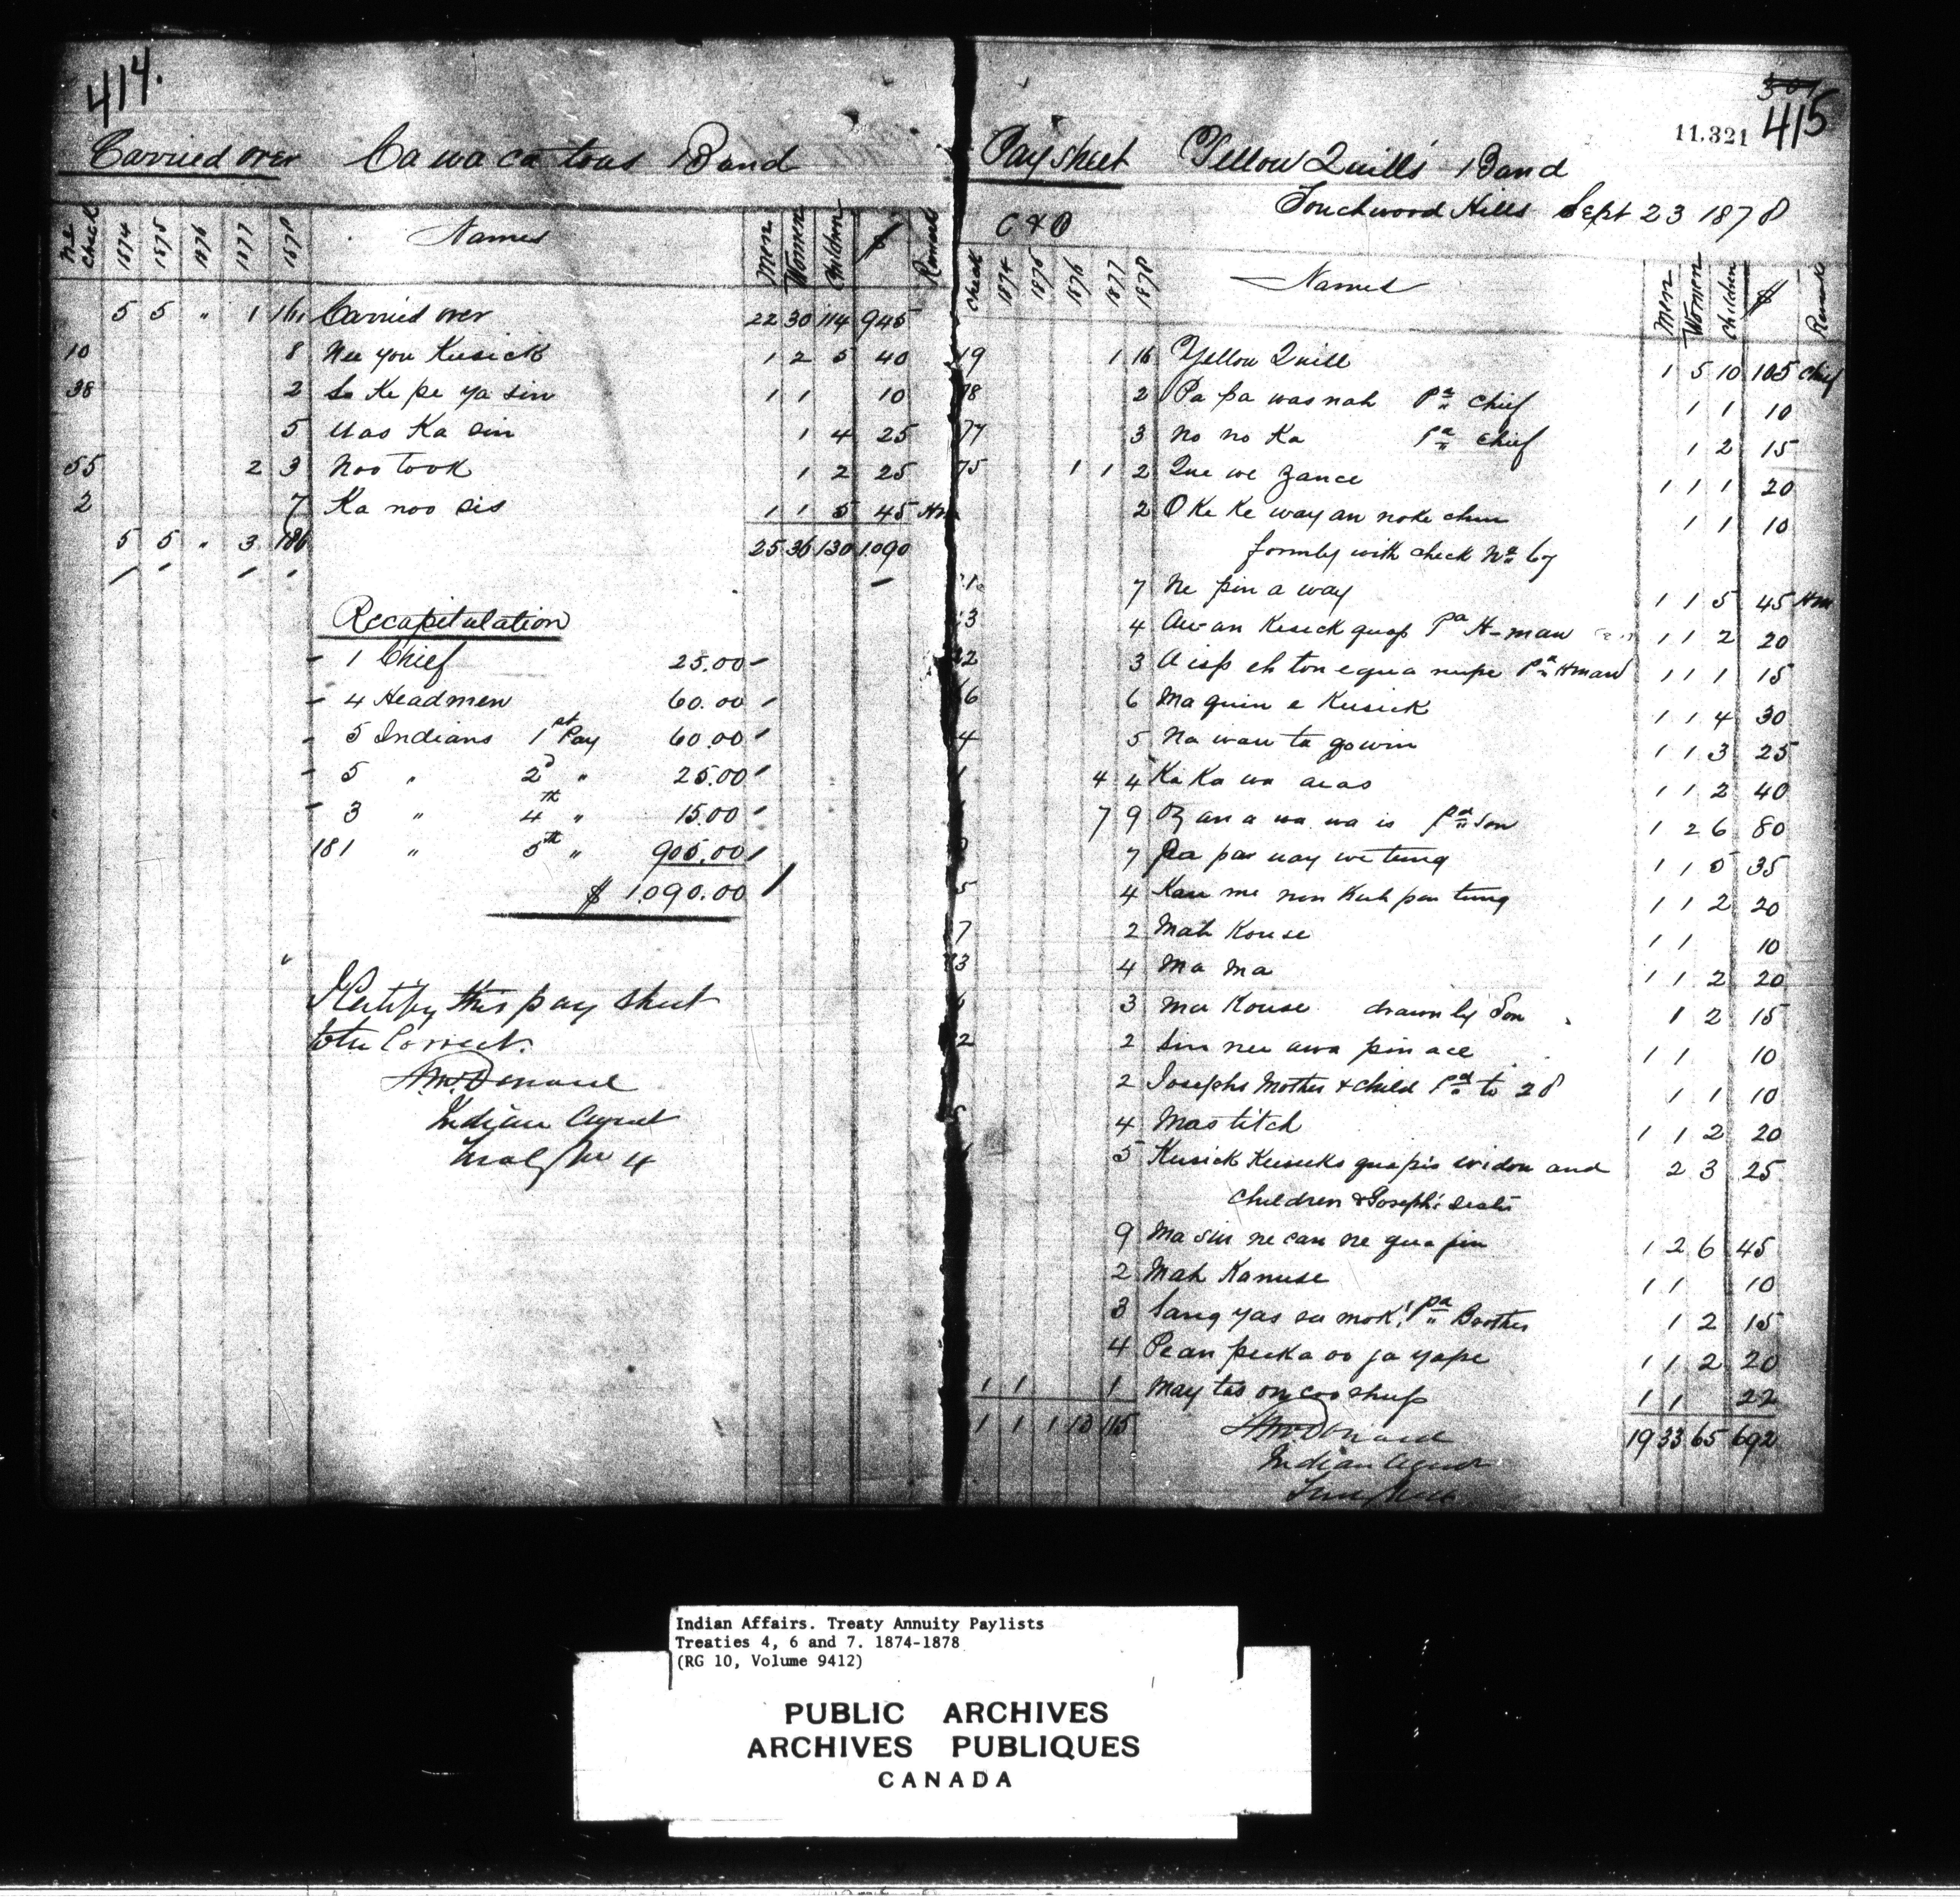 414.
Carried over Ca wa ca toos Band
No Check 1874 1875 1876 1877 1878 Names Men Women Children $ Remarks
5 5 " 1 161 Carried over 22 30 114 945
10 8 Nee you Kusick 1 2 5 40
38 2 Sa Ke pe ya sin 1 1 10
5 Uas Ka sin 1 4 25
55 2 3 Noo took 1 2 25
2 7 Ka noo sis 1 1 5 45 Hm
5 5 " 3 186 25 36 130 1.090
Recapitulation
1 Chief 25.00
4 Headmen 60.00
5 Indians 1st Pay 60.00
5 " 2d " 25.00
3 " 4th " 15.00
181 " 5th " 905.00
$ 1.090.00
I Certify this pay sheet
to be Correct.
A McDonald
Indian Agent
Treaty No 4
301
11.321 415
Pay Sheet Yellow Quill's Band
Touchwood Hills Sept 23 1878
C & O
Check 1874 1875 1876 1877 1878 Names Men Women Children $ Remarks
19 1 16 Yellow Quill 1 5 10 105 Chief
78 2 Pa pa was nah Pd Chief 1 1 10
77 3 No no Ka Pd Chief 1 2 15
75 1 1 2 Que we zance 1 1 1 20
2 O Ke Ke way an noke chin 1 1 10
formly with check No 67
7 Ne pin a way 1 1 5 45 Hm
3 4 Aw an Kesick quap Pd H-man 1 1 2 20
22 3 A isp eh ton equa nupe Pd Hman 1 1 1 15
66 6 Ma quin e Kusick 1 1 4 30
4 5 Na wau ta gowin 1 1 3 25
1 4 4 Ka Ka wa aeas 1 1 2 40
7 9 Oz an a wa wa is Pd Son 1 2 6 80
7 Pa pas nay we tung 1 1 5 35
5 4 Kau me non Kuh pen tung 1 1 2 20
7 2 Mah Kouse 1 1 10
3 4 Ma Ma 1 1 2 20
3 Ma Kouse drawn by Son 1 2 15
2 2 Sin nee awa pin ace 1 1 10
2 Josephs Mother & child Pd to 28 1 1 10
5 4 Mas titch 1 1 2 20
5 Kusick Kusicks quapis widow and 2 3 25
Children & Joseph's
9 Ma sin ne can ne qua pin 1 2 6 45
2 Mah Kanuse 1 1 10
3 Sang yas su mok, Pd Brother 1 2 15
4 Pean peeka oo ja yape 1 1 2 20
1 1 1 May tas on coo shup 1 1 22
1 1 1 13 115 19 33 65 692
A McDonald
Indian Agent
Indian Affairs. Treaty Annuity Paylists
Treaties 4, 6 and 7. 1874-1878
(RG 10, Volume 9412)
PUBLIC ARCHIVES
ARCHIVES PUBLIQUES
CANADA